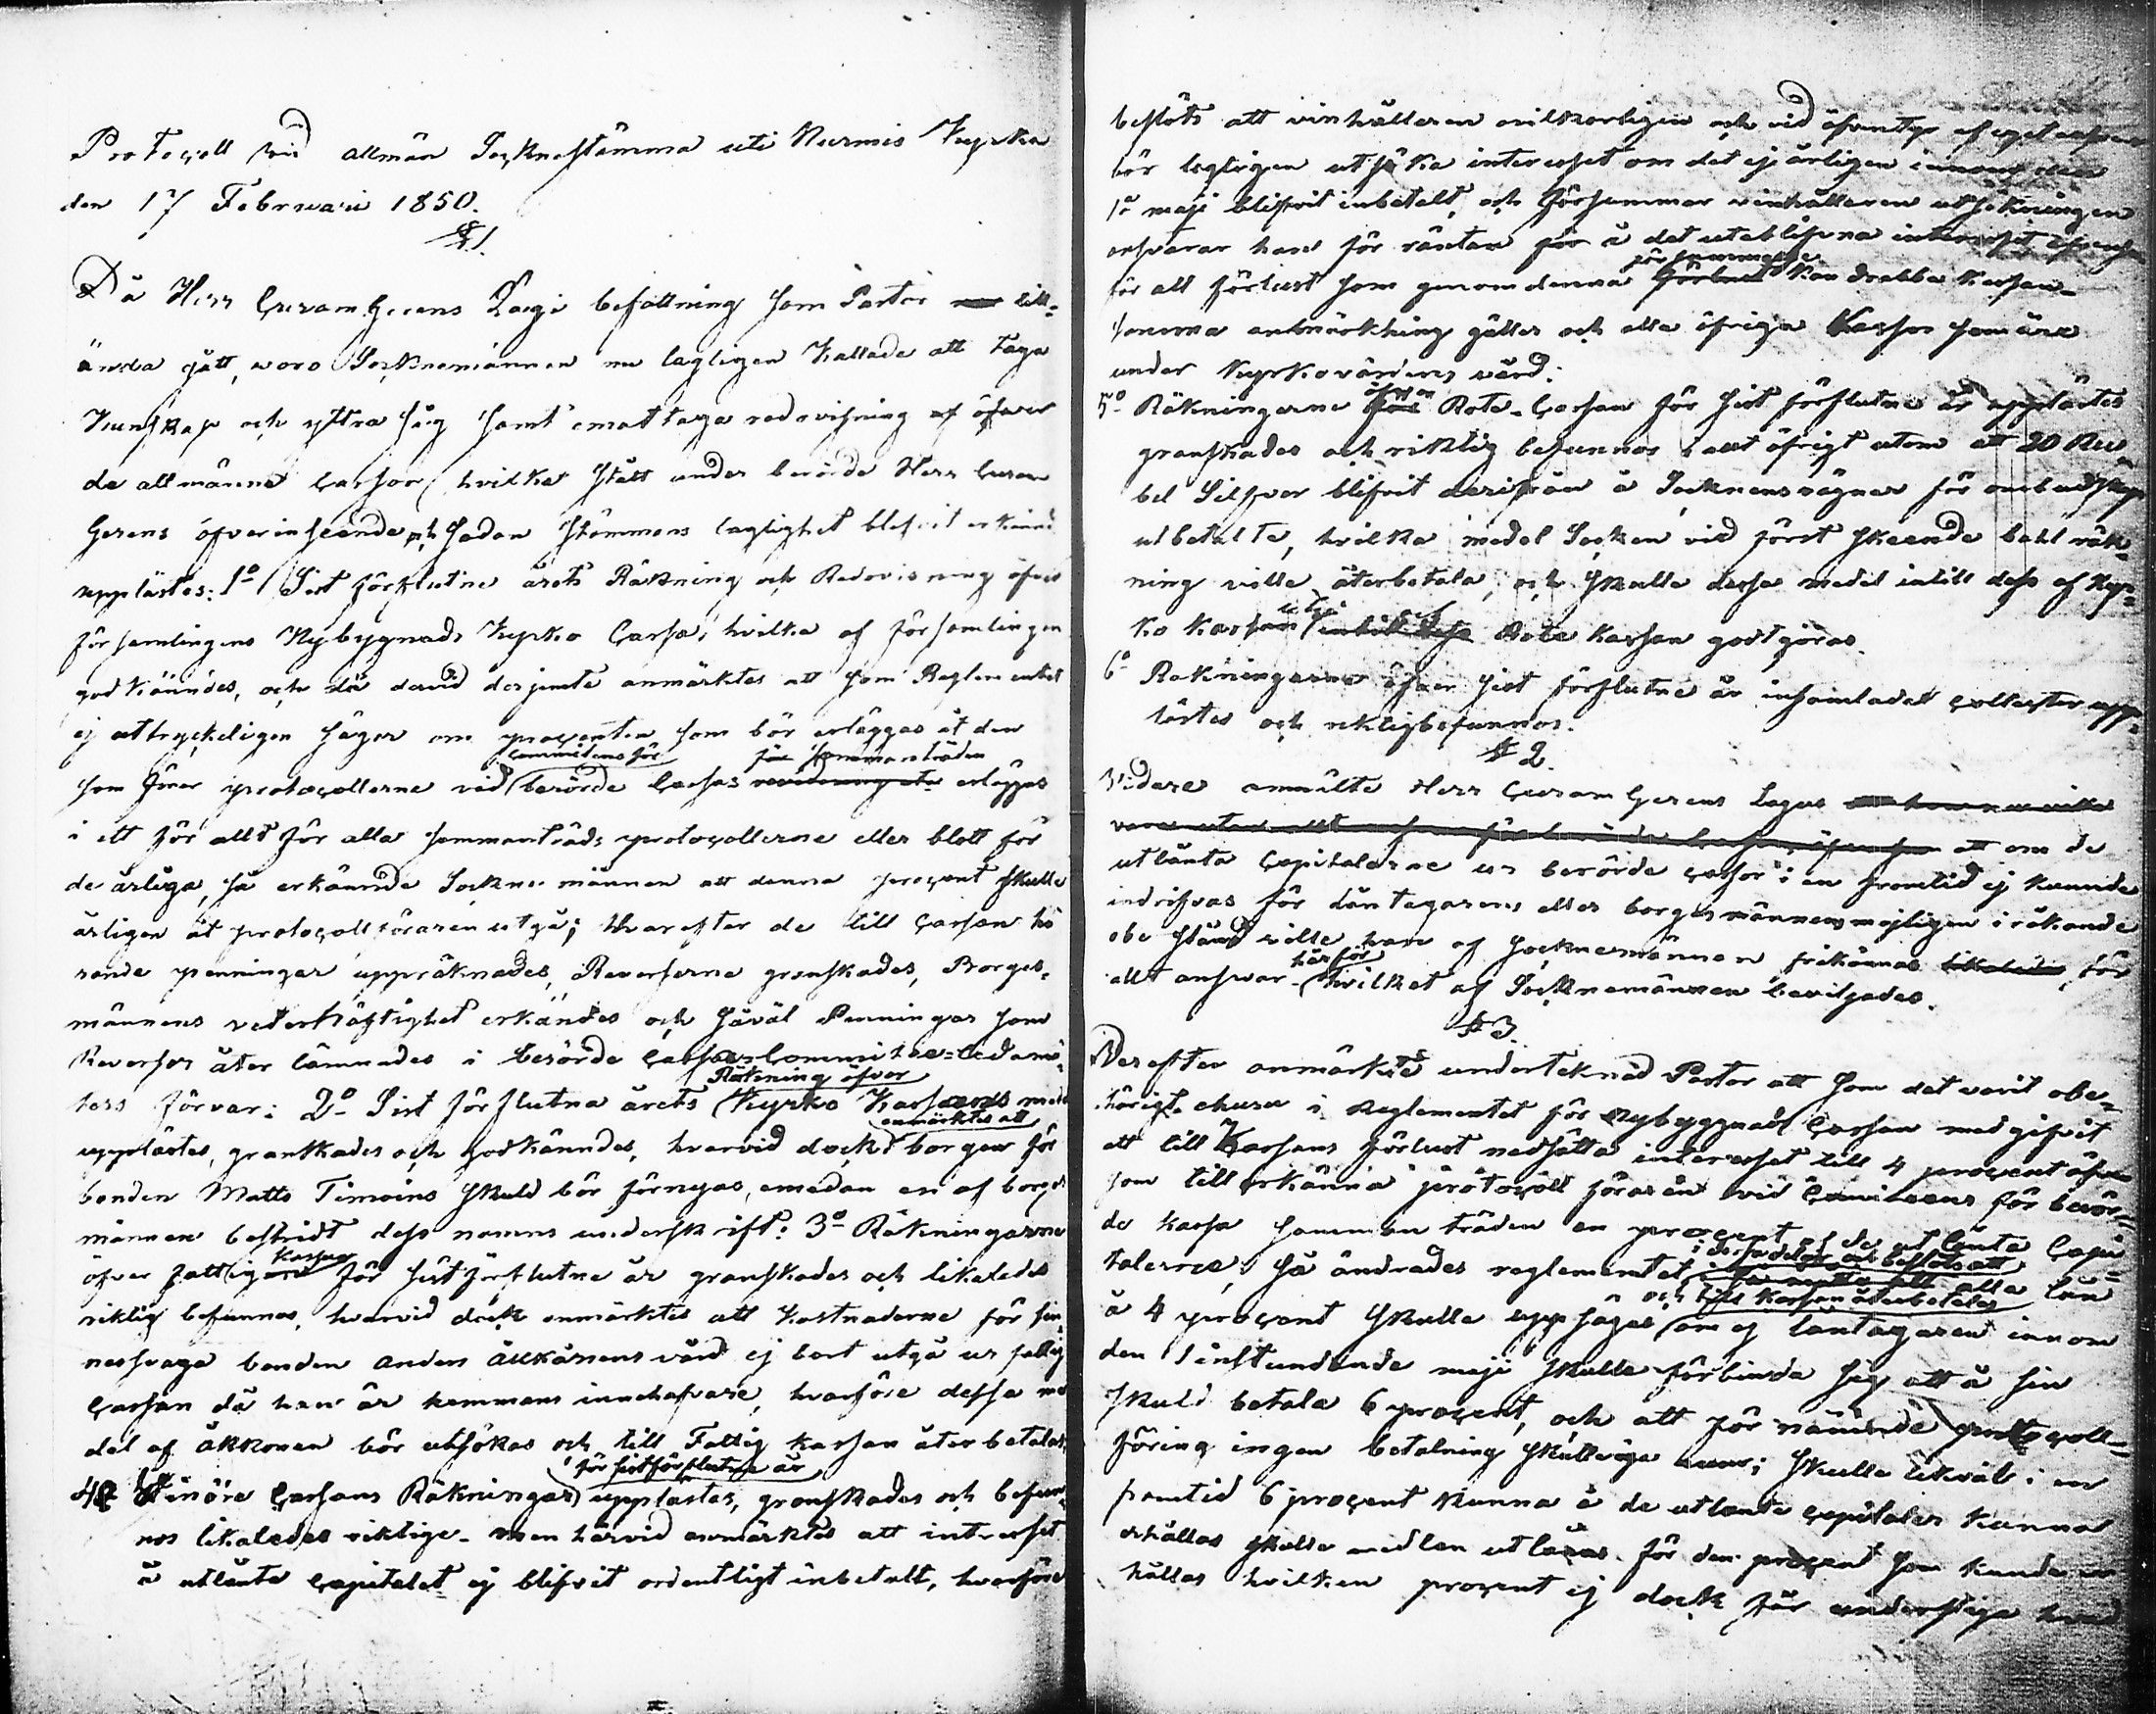 Protocoll vid allmän Socknestämma uti Nurmis Kyrka
den 17 Februari 1850.
§ 1.
Då Herr Curam Gerens Lagi befattning som Pastor till-
ända gått, woro Socknemännen nu lagligen kallade att taga
kunskap och yttra sig samt emottaga redovisning af öfver
de allmänna Cassor hvilka stått under berörde Herr Curam
Gerens öfverinseende, och sedan Stämmans laglighet blifvit erkänd
upplästes: 1o Sist förflutne årets Räkning och Redovisning öfver
församlingens Nybygnads Kyrko Cassa, hvilka af församlingen
godkänndes, och då dervid derjemte anmärktes att som Reglementet
ej uttryckeligen säger om procenten som bör erläggas åt den
committens för för sammanträden
som förer protocollerne vid berörde Cassas erlägges
i ett för allt för alla sammanträds protocollerne eller blott för
de årliga, så erkännde Socknemännen att denna procent skulle
årligen åt protocollsföraren utgå; Hvarefter de till Cassan hö
rande penningar uppräknades, Reverserne granskades, Borges-
männens vederhäftighet erkändes och såväl Penningar som
Reverser åter lämnades i berörde Cassas Committee-Ledamö-
Räkning öfver
ters förvar: 2o Sist förflutna årets Kyrko Kassans med
anmärktes att
upplästes, granskades och godkänndes, hvarvid dock borgen för
bonden Matts Timoins skuld bör förnyas, emedan en af borges
männen bestridt dess namns underskrift: 3o Räkningarne
Kassan
öfver fattig för sistförflutne år granskades och likaledes
riktig befunnos, hvarvid dock anmärktes att kostnaderne för sin-
nessvaga bonden Anders Äkkänens vård ej bort utgå ur fattig
Cassan då han är hemmans innehafvare, hvarföre dessa me
del af Äkkönen bör utsökas och till Fattig kassan återbetalas
för sistförflutne år
4o Vinöre Cassans Räkningar upplästes, granskades och befun-
nos likaledes riktige - men härvid anmärktes att interesset
å utlånta Capitalet ej blifvit ordentligt inbetalt, hvarföre
beslöts att vinhållaren ovilkorligen och vid äfventyr af eget ansvar
bör lagligen utsöka interesset om det ej årligen innom den
1a maji blifvit inbetalt, och försummar vinhållaren utsökningen
ansvarar han för räntan för å det uteblifvna interesset äfvensom
försummelse
för all förlust som genom denna kan drabba kassan-
samma anmärkning gäller och alla öfriga Kassor som äro
under Kyrkovärdens vård:
öfver
5o Räkningarne Rote-Cassan för sist förflutne år upplästes
granskades och riktig befunnos i allt öfrigt utom att 20 Ru-
bel Silfver blifvit derifrån å Socknens vägnar för ombudskap
utbetalte, hvilka medel Socken vid först skeende betalräk-
ning ville återbetala, och skulle dessa medel intill dess af Kyr-
ko kassan Rote kassan godtgöras.
6o Räkningarne öfver sist förflutne år insamlade collecter upp-
lästes och riktig befunnos.
§ 2.
Vidare anmälte Herr Curam Gerens Lagus
att om de
utlånta Capitalerne ur berörde cassor i en framtid ej kunnde
indrifvas för låntagarens eller borgesmännens möjligen iråkande
obestånd ville han af Socknemännen frikännas för
härför
allt ansvar - hvilket af Socknemännen bevilgades.
§ 3.
Derefter anmärkte undertecknad Pastor att som det varit obe-
hörigt i Reglementet för Nybyggnads Cassan medgifvit
att till Kassans förlust nedsätta interesset till 4 procent äfven
som tillerkänna protocoll föraren vid Comiteens för berör-
de kassa sammanträden en procent af de utlånta Capi-
i dessa delar och beslöts att
talerne; så ändrades reglementet alla lån
och till Kassan återbetalas
å 4 procent skulle uppsägas om ej låntagaren innom
den 1 instundande maji skulle förbinda sig att å sin
skuld betala 6 procent, och att för nämnde protocoll-
föring ingen betalning skulle äga rum; skulle likväl i en
framtid 6 procent kunna å de utlånta Capitaler kunna
erhållas skulle medlen utlånas för den procent som kunde er
hållas hvilken procent ej dock får understiga hvad